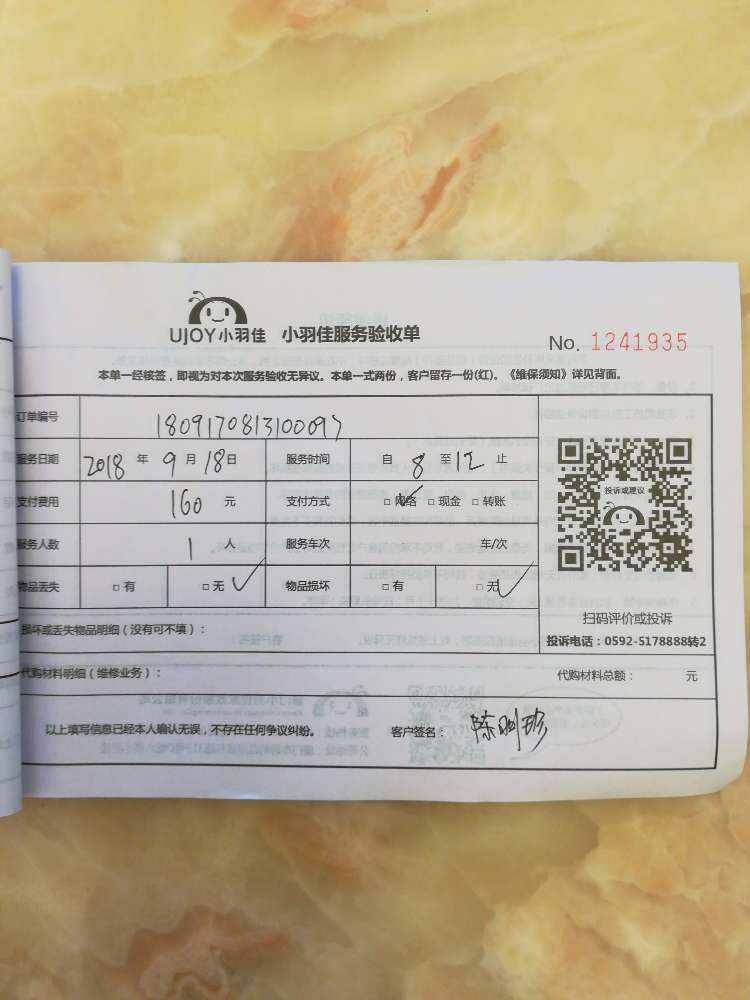 UJOY小羽佳 小羽佳服务验收单
No. 1241935
本单一经核签，即视为对本次服务验收无异议。本单一式两份，客户留存一份(红)。《维保须知》详见背面。
订单编号 1809170813100097
服务日期 2018 年 9 月 18 日 服务时间 自 8 至 12 止
支付费用 160 元 支付方式 □ 网络 □ 现金 □ 转账
服务人数 1 人 服务车次 车/次
物品丢失 □ 有 □ 无 ✓ 物品损坏 □ 有 □ 无 ✓
投诉或建议
扫码评价或投诉
投诉电话：0592-5178888转2
损坏或丢失物品明细（没有可不填）：
代购材料明细（维修业务）： 代购材料总额： 元
以上填写信息已经本人确认无误，不存在任何争议纠纷。 客户签名：